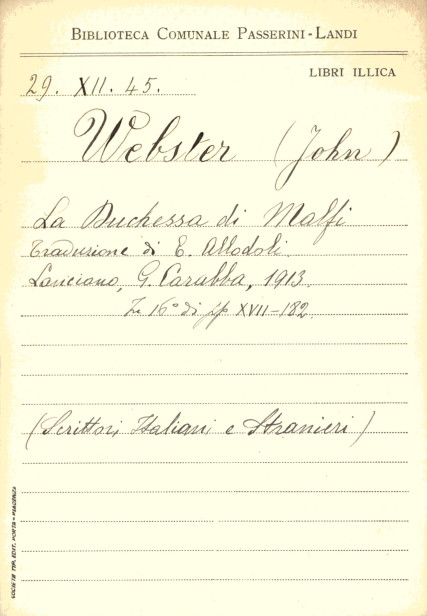 BIBLIOTECA COMUNALE PASSERINI-LANDI
LIBRI ILLICA
29. XII. 45.
Webster (John)
La Duchessa di Malfi
Traduzione di E. Allodoli.
Lanciano, G. Carabba, 1913.
In 16° di pp XVII-182.
(Scrittori Italiani e Stranieri)
SOCIETÀ TIP. EDIT. PORTA - PIACENZA